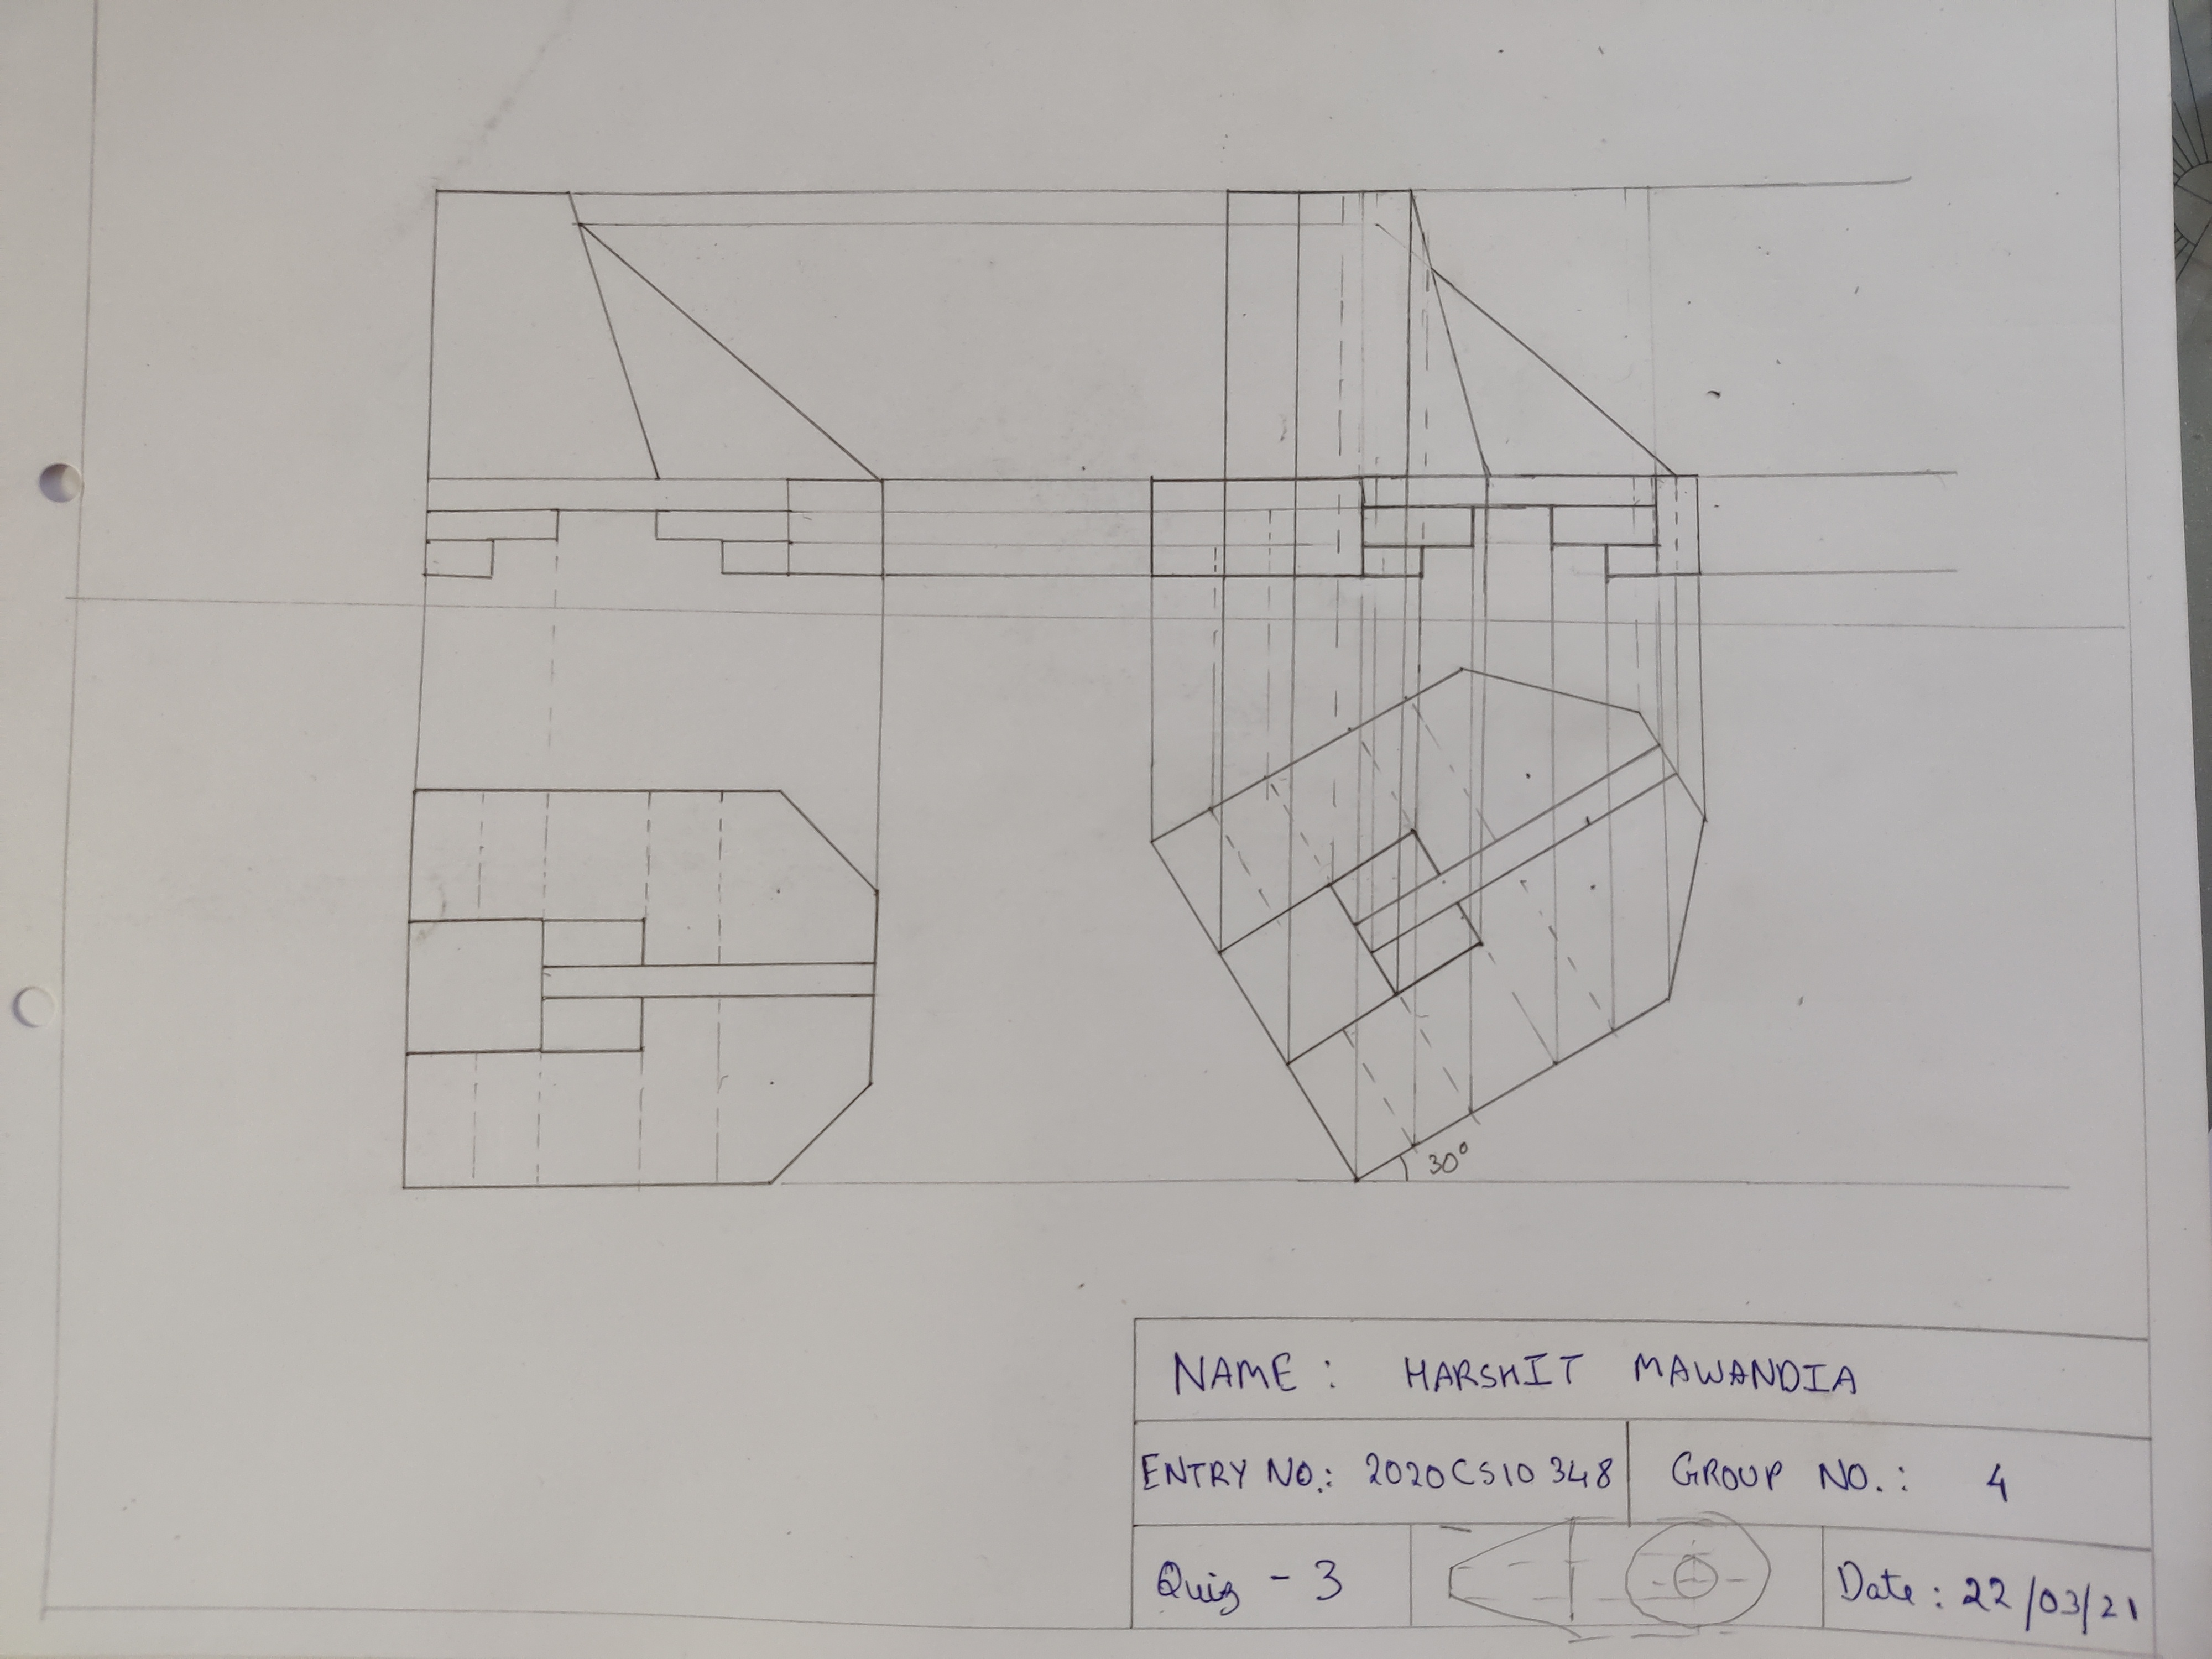 30°
NAME : HARSHIT MAWANDIA
ENTRY NO.: 2020CS10348 GROUP NO.: 4
Quiz - 3 Date : 22/03/21